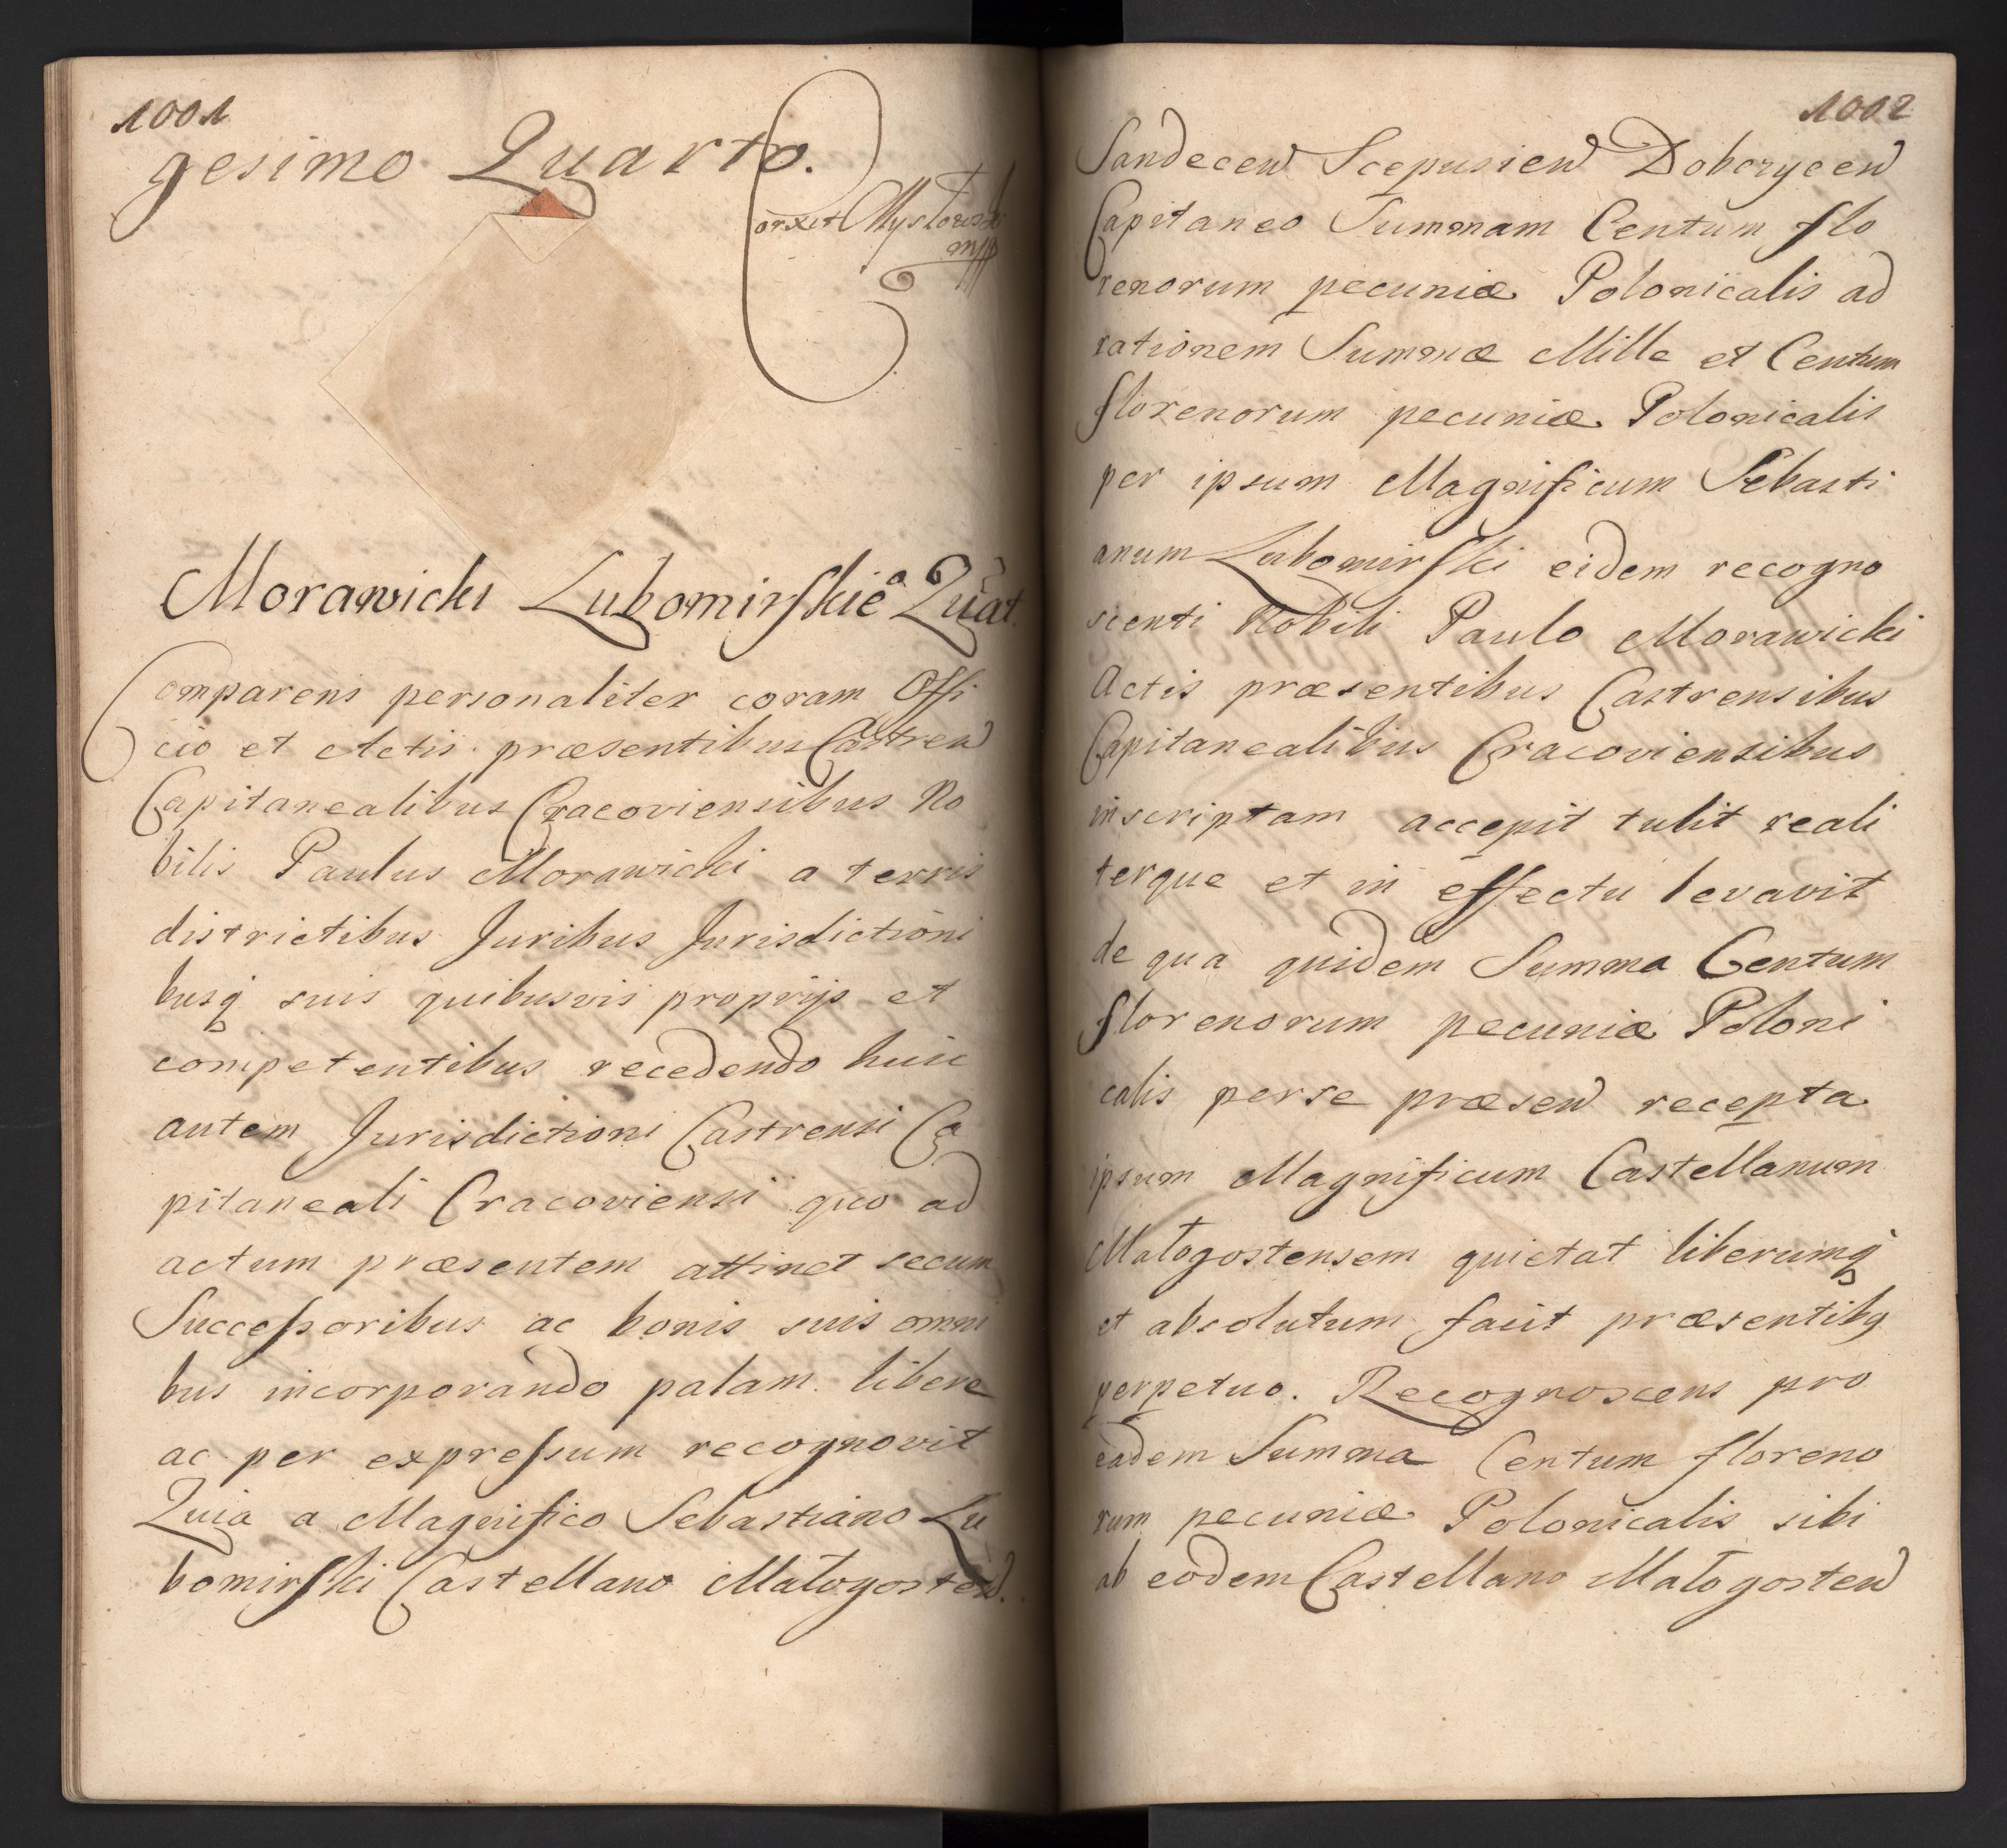 1001
gesimo Quarto.
Morawicki Lubomirskiē Quāt.
Comparens personaliter coram Offi
cio et Actis præsentibus Castren
Capitanealibus Cracoviensibus No
bilis Paulus Morawicki a terris
districtibus Juribus Jurisdictioni
busq suis quibusvis proprijs et
competentibus recedendo huic
autem Jurisdictioni Castrensi Ca
pitaneali Cracoviensi quo ad
actum præsentem attinet secum
Successoribus ac bonis suis omni
bus incorporando palam libere
ac per expressum recognovit
Quia a Magnifico Sebastiano Lu
bomirski Castellano Małogosten.
1002
Sandecen Scepusien Dobczycen
Capitaneo Summam Centum flo
renorum pecuniæ Polonicalis ad
rationem Summæ Mille et Centum
florenorum pecuniæ Polonicalis
per ipsum Magnificum Sebasti
anum Lubomirski eidem recogno
scenti Nobili Paulo Morawicki
Actis præsentibus Castrensibus
Capitanealibus Cracoviensibus
inscriptam accepit tulit reali
terque et in effectu levavit
de qua quidem Summa Centum
florenorum pecuniæ Poloni
calis per se præsen recepta
ipsum Magnificum Castellanum
Małogostensem quietat liberumq
et absolutum facit præsentibq
perpetuo. Recognoscens pro
eadem Summa Centum floreno
rum pecuniæ Polonicalis sibi
ab eodem Castellano Małogosten